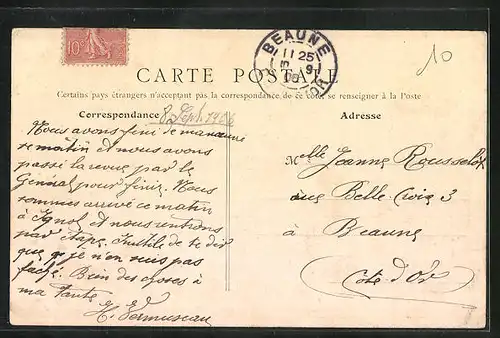 10c
BEAUNE
11 25
5 - 9
06
10
CARTE POSTALE
Certains pays étrangers n'acceptent pas la correspondance de ce côté, se renseigner à la Poste
Correspondance
8 Sept 1906
Adresse
Nous avons fini de manœuvré
ce matin et nous avons
passé la revue par le
Général pour finir. Nous
sommes arrivé ce matin
à Ignol et nous rentrons
par étape. Inutile de te dire
que je n'en suis pas
faché. Bien des choses à
ma Tante
Melle Jeanne Rousselot
rue Belle Croix 3
à Beaune
Cote d'Or